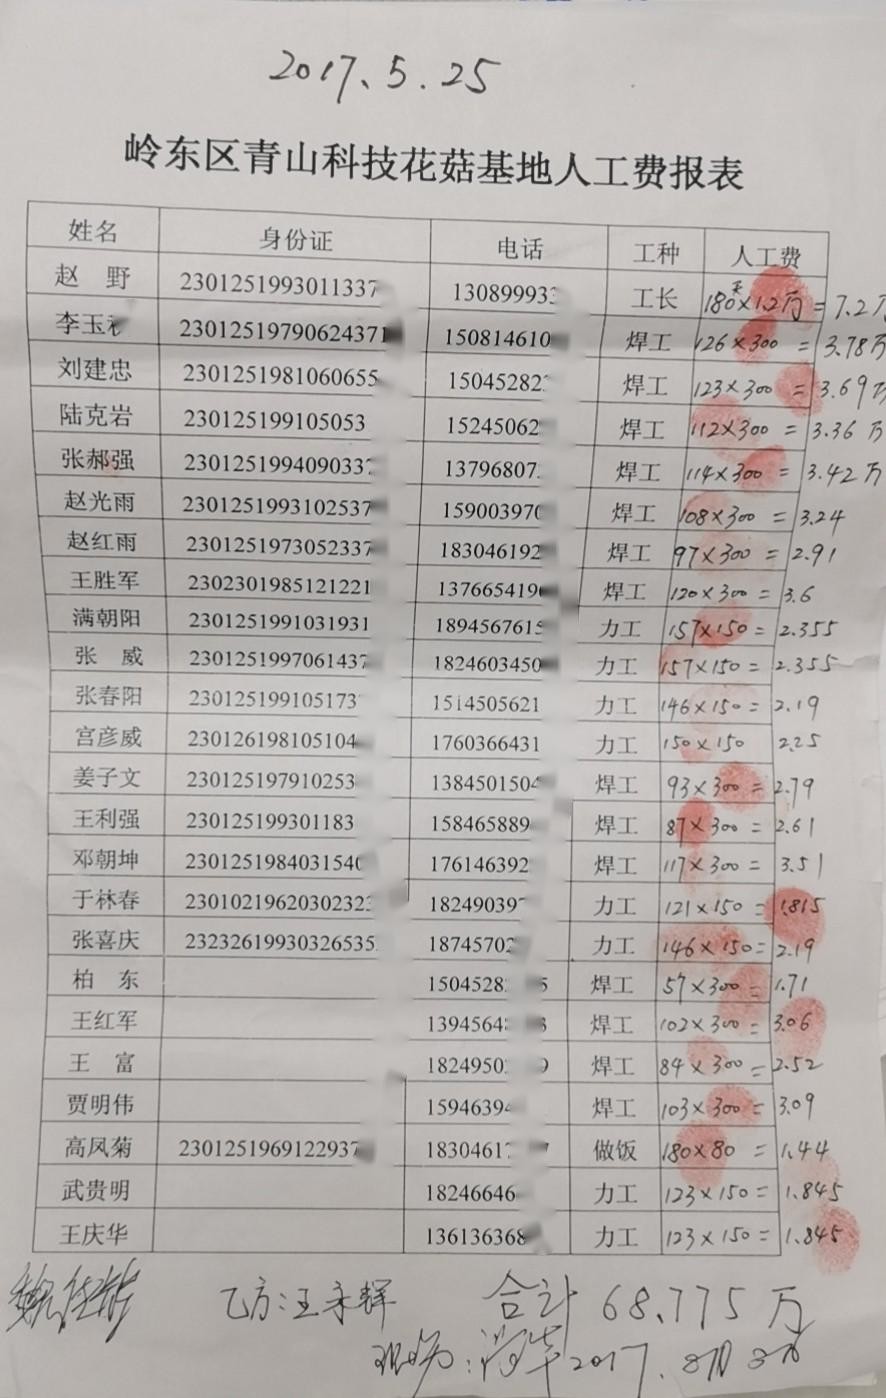 2017、5.25
岭东区青山科技花菇基地人工费报表
姓名 身份证 电话 工种 人工费
赵 野 2301251993011337 130899933 工长 180天×1.2万=7.2万
李玉 23012519790624371 150814610 焊工 126×300=3.78万
刘建忠 2301251981060655 150452822 焊工 123×300=3.69万
陆克岩 230125199105053 15245062 焊工 112×300=3.36万
张郝强 230125199409033 13796807 焊工 114×300=3.42万
赵光雨 2301251993102537 15900397 焊工 108×300=3.24
赵红雨 2301251973052337 183046192 焊工 97×300=2.91
王胜军 2302301985121221 137665419 焊工 120×300=3.6
满朝阳 2301251991031931 1894567615 力工 157×150=2.355
张 威 2301251997061437 1824603450 力工 157×150=2.355
张春阳 230125199105173 1514505621 力工 146×150=2.19
宫彦威 230126198105104 1760366431 力工 150×150 2.25
姜子文 230125197910253 1384501504 焊工 93×300=2.79
王利强 230125199301183 158465889 焊工 87×300=2.61
邓朝坤 230125198403154 176146392 焊工 117×300=3.51
于林春 230102196203023 18249039 力工 121×150=1.815
张喜庆 23232619930326535 18745702 力工 146×150=2.19
柏 东 1504528 5 焊工 57×300=1.71
王红军 1394564 焊工 102×300=3.06
王 富 1824950 9 焊工 84×300=2.52
贾明伟 1594639 焊工 103×300=3.09
高凤菊 2301251969122937 1830461 做饭 180×80=1.44
武贵明 18246646 力工 123×150=1.845
王庆华 136136368 力工 123×150=1.845
乙方:王永辉 合计 68.775万
现场: 2017.8月3日